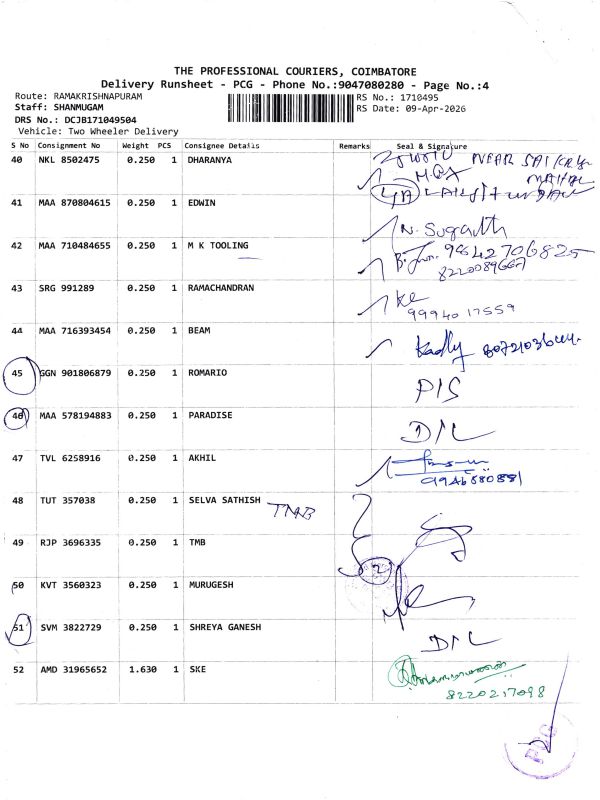 THE PROFESSIONAL COURIERS, COIMBATORE
Delivery Runsheet - PCG - Phone No.:9047080280 - Page No.:4
Route: RAMAKRISHNAPURAM RS No.: 1710495
Staff: SHANMUGAM RS Date: 09-Apr-2026
DRS No.: DCJB171049504
Vehicle: Two Wheeler Delivery
S No Consignment No Weight PCS Consignee Details Remarks Seal & Signature
40 NKL 8502475 0.250 1 DHARANYA
NEAR SAI
41 MAA 870804615 0.250 1 EDWIN
N. Sugarth
42 MAA 710484655 0.250 1 M K TOOLING
9842706825
8220089667
43 SRG 991289 0.250 1 RAMACHANDRAN
99940 17559
44 MAA 716393454 0.250 1 BEAM
45 GGN 901806879 0.250 1 ROMARIO P/S
46 MAA 578194883 0.250 1 PARADISE D/L
47 TVL 6258916 0.250 1 AKHIL
48 TUT 357038 0.250 1 SELVA SATHISH TMB
49 RJP 3696335 0.250 1 TMB
2
50 KVT 3560323 0.250 1 MURUGESH
51 SVM 3822729 0.250 1 SHREYA GANESH D/L
52 AMD 31965652 1.630 1 SKE
8220217098
PCG